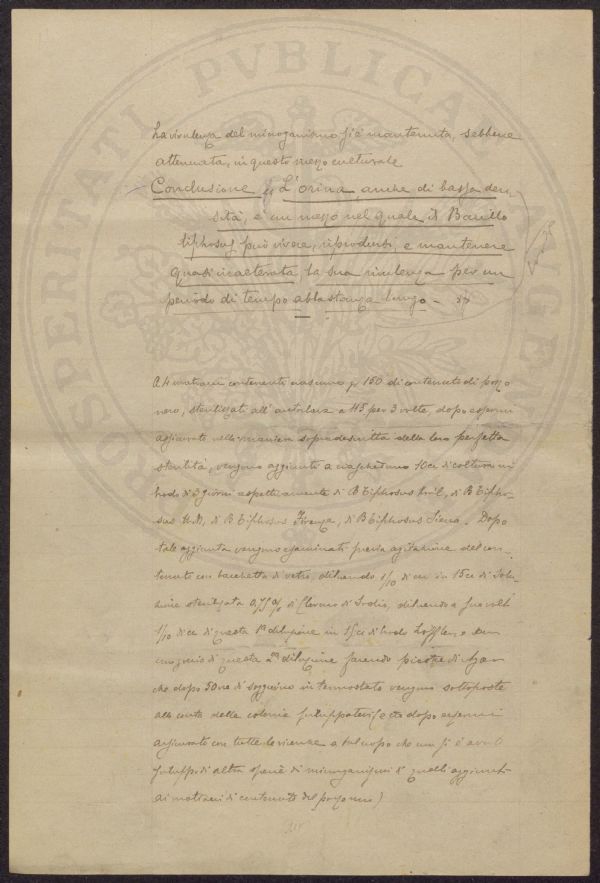 La virulenza del microrganismo si è mantenuta, sebbene
attenuata, in questo mezzo culturale
Conclusione = L'orina, anche di bassa den-
sità, è un mezzo nel quale il Bacillo
tiphosus può vivere, riprodursi, e mantenere
quasi inalterata la sua virulenza per un
periodo di tempo abbastanza lungo -
A 4 matracci contenenti ciascuno g 150 di contenuto di pozzo
nero, sterilizzati all'autoclave a 115 per 3 volte, dopo essersi
assicurati nella maniera sopradescritta della loro perfetta
sterilità, vengono aggiunti a ciascheduno 10cc di coltura in
brodo di 3 giorni rispettivamente di B Tiphosus Kral, di B Tipho-
sus di B Tiphosus Firenze, di B Tiphosus Siena. Dopo
tale aggiunta vengono esaminati previa agitazione del con-
tenuto con bacchetta di vetro, diluendo 1/10 di cc in 15cc di Solu-
zione sterilizzata 0,75% di Cloruro di Sodio, diluendo a sua volta
1/10 di cc di questa 1ª diluzione in 15cc di brodo Löffler, e
di questa 2ª diluzione facendo piastre di Agar
che dopo 30 ore di soggiorno in termostato vengono sottoposte
alla conta delle colonie sviluppatesi (e ciò dopo essersi
assicurati con tutte le ricerche a tal scopo che non si è avuto
sviluppo di altre specie di microrganismi di quelli aggiunti
ai matracci di contenuto del pozzo nero)
PROSPERITATI PVBLICAE